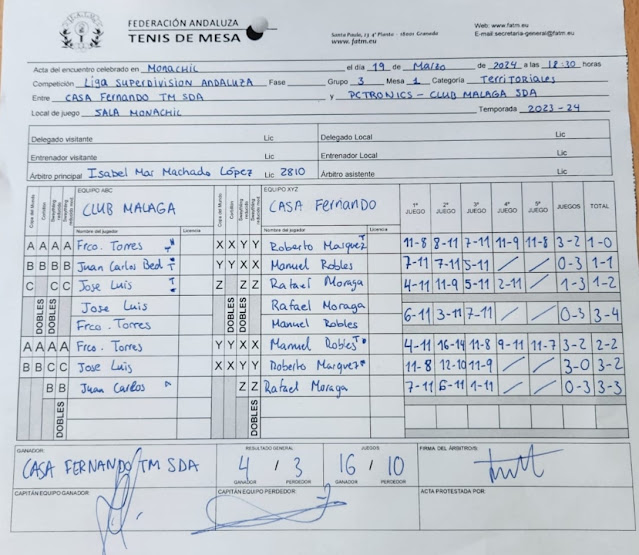 FEDERACIÓN ANDALUZA
TENIS DE MESA
Santa Paula, 23 4ª Planta - 18001 Granada
www.fatm.eu
Web: www.fatm.eu
E-mail: secretaria-general@fatm.eu
Acta del encuentro celebrado en MONACHIL el día 19 de Marzo de 2024 a las 18:30 horas
Competición Liga SUPERDIVISIÓN ANDALUZA Fase Grupo 3 Mesa 1 Categoría Territoriales
Entre CASA Fernando TM SDA y PCTRONICS - CLUB MALAGA SDA
Local de juego SALA MONACHIL Temporada 2023-24
Delegado visitante Lic Delegado Local Lic
Entrenador visitante Lic Entrenador Local Lic
Árbitro principal Isabel Mar Machado López Lic 2810 Árbitro asistente Lic
Copa del Mundo Corbillon Swaythling reducido Swaythling reducido mod. EQUIPO ABC CLUB MALAGA Copa del Mundo Corbillon Swaythling reducido Swaythling reducido mod. EQUIPO XYZ CASA Fernando 1º JUEGO 2º JUEGO 3º JUEGO 4º JUEGO 5º JUEGO JUEGOS TOTAL
Nombre del jugador Licencia Nombre del jugador Licencia
A A A A Frco. Torres X X Y Y Roberto Marquez T 11-8 8-11 7-11 11-9 11-8 3-2 1-0
B B B B Juan Carlos Bed Y Y X X Manuel Robles 7-11 7-11 5-11 / / 0-3 1-1
C C C Jose Luis Z Z Z Rafael Moraga 4-11 11-9 5-11 2-11 / 1-3 1-2
DOBLES DOBLES Jose Luis DOBLES DOBLES Rafael Moraga
Frco. Torres Manuel Robles 6-11 3-11 7-11 / / 0-3 3-4
A A A A Frco. Torres Y Y X X Manuel Robles T 4-11 16-14 11-8 9-11 11-7 3-2 2-2
B B C C Jose Luis X X Y Y Roberto Marquez 11-8 12-10 11-9 / / 3-0 3-2
B B Juan Carlos Z Z Rafael Moraga 7-11 6-11 1-11 / / 0-3 3-3
DOBLES DOBLES
GANADOR: CASA FERNANDO TM SDA RESULTADO GENERAL 4 / 3 GANADOR PERDEDOR JUEGOS 16 / 10 GANADOR PERDEDOR FIRMA DEL ÁRBITRO/S:
CAPITÁN EQUIPO GANADOR: CAPITÁN EQUIPO PERDEDOR: ACTA PROTESTADA POR: